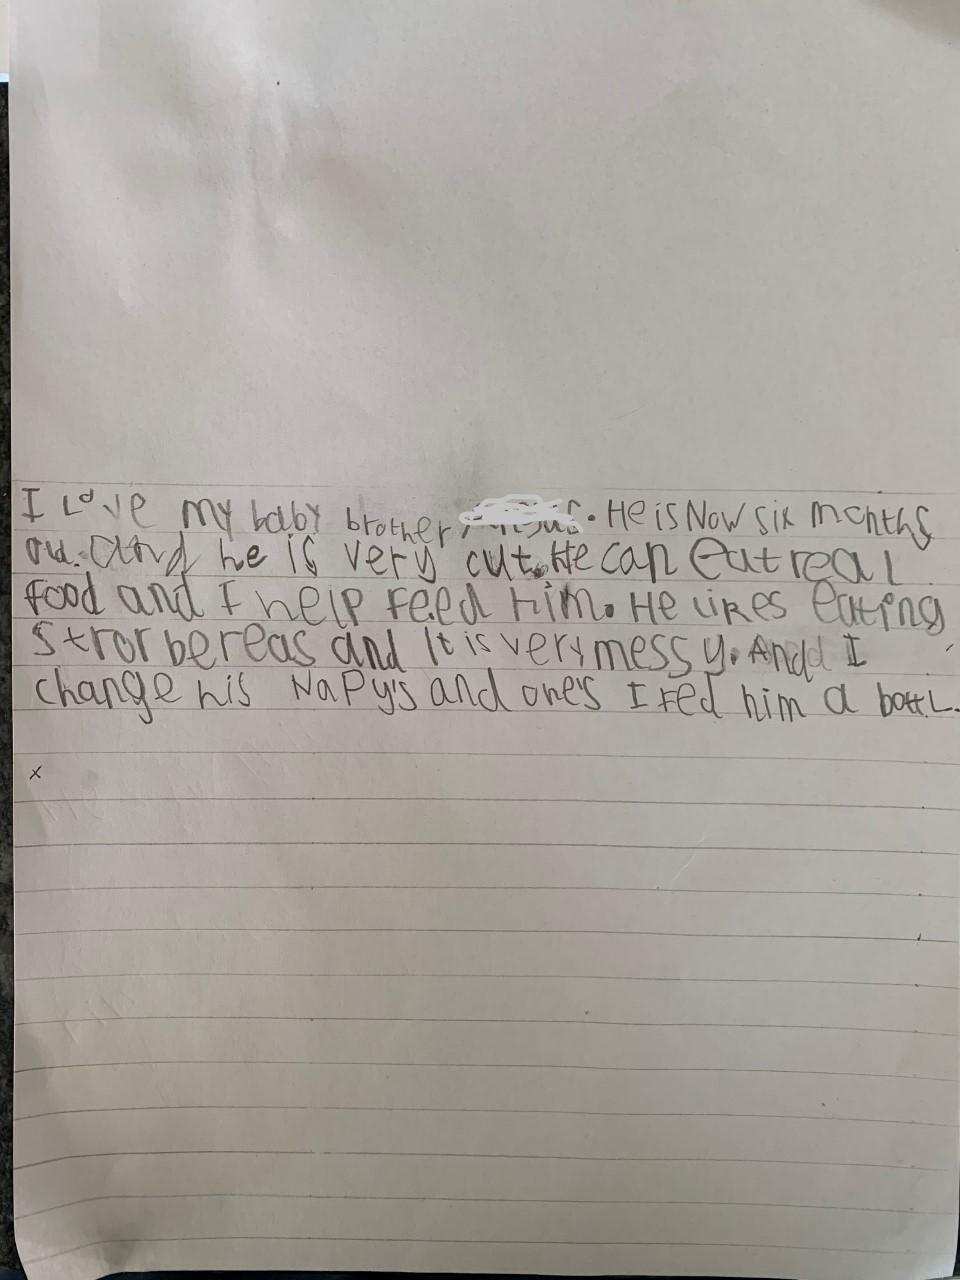 I Love my baby brother, . He is Now six months
old. and he is very cut. He can eat real
food and I help feed him. He likes eating
Strorbereas and It is very messy. And I
change his Napy's and one's I fed him a bottL.
x